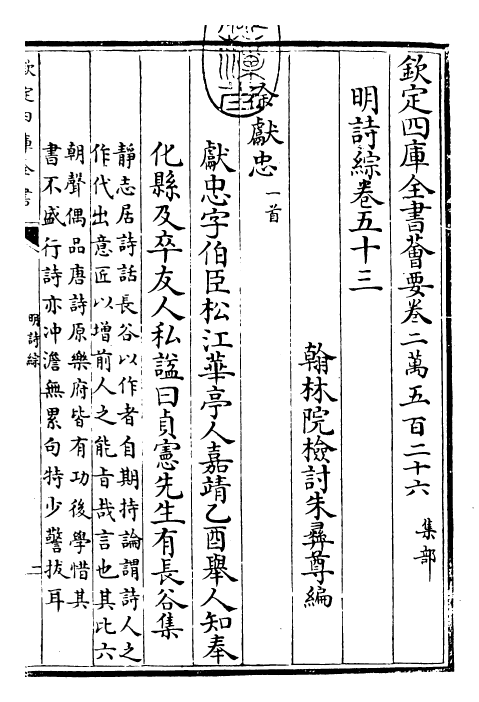 欽定四庫全書薈要卷二萬五百二十六 集部
明詩綜卷五十三
翰林院檢討朱彛尊編
徐獻忠一首
獻忠字伯臣松江華亭人嘉靖乙酉舉人知奉
化縣及卒友人私諡曰貞憲先生有長谷集
靜志居詩話長谷以作者自期持論謂詩人之
作代出意匠以增前人之能旨哉言也其比六
朝聲偶品唐詩原樂府皆有功後學惜其
書不盛行詩亦冲澹無累句特少警拔耳
欽定四庫全書
明詩綜
二